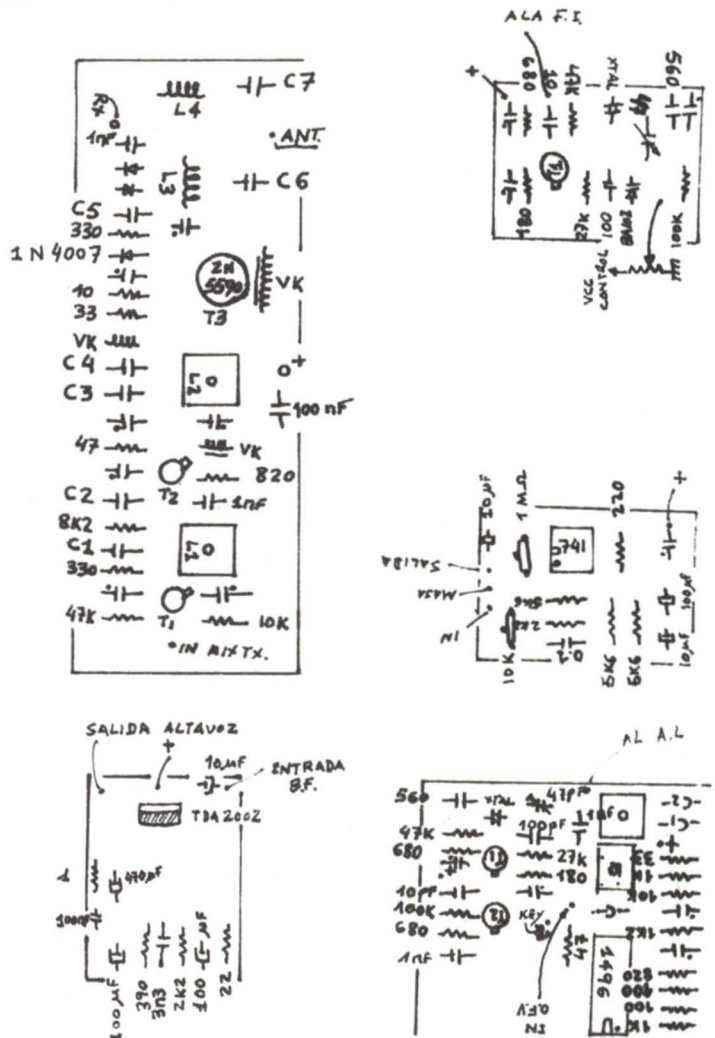 C7
L4
RX
1nF
ANT.
L3
C6
C5
330
1N4007
10
33
2N
5590
T3
VK
VK
C4
C3
L2
+
100 nF
47
VK
820
T2
C2
1nF
8K2
C1
L1
330
47K
T1
10K
IN MIX TX.
A LA F.I.
+
680
10
47K
XTAL
560
T1
180
27K
100
BA102
100K
VCC
CONTROL
10µF
1 MΩ
220
+
741
SALIDA
MASA
IN
5K6
2K2
10K
0.1
5K6
5K6
10µF
100µF
SALIDA ALTAVOZ
+
10µF
ENTRADA
B.F.
TDA2002
1
470µF
100nF
100µF
390
3n3
2K2
100µF
22
AL A.L
560
XTAL
47PF
C2
C1
47K
100PF
+
680
T1
27K
180
33
1K
10K
10PF
100K
T2
KEY
680
47
1K2
1nF
1496
820
100
1K
IN
O.F.V